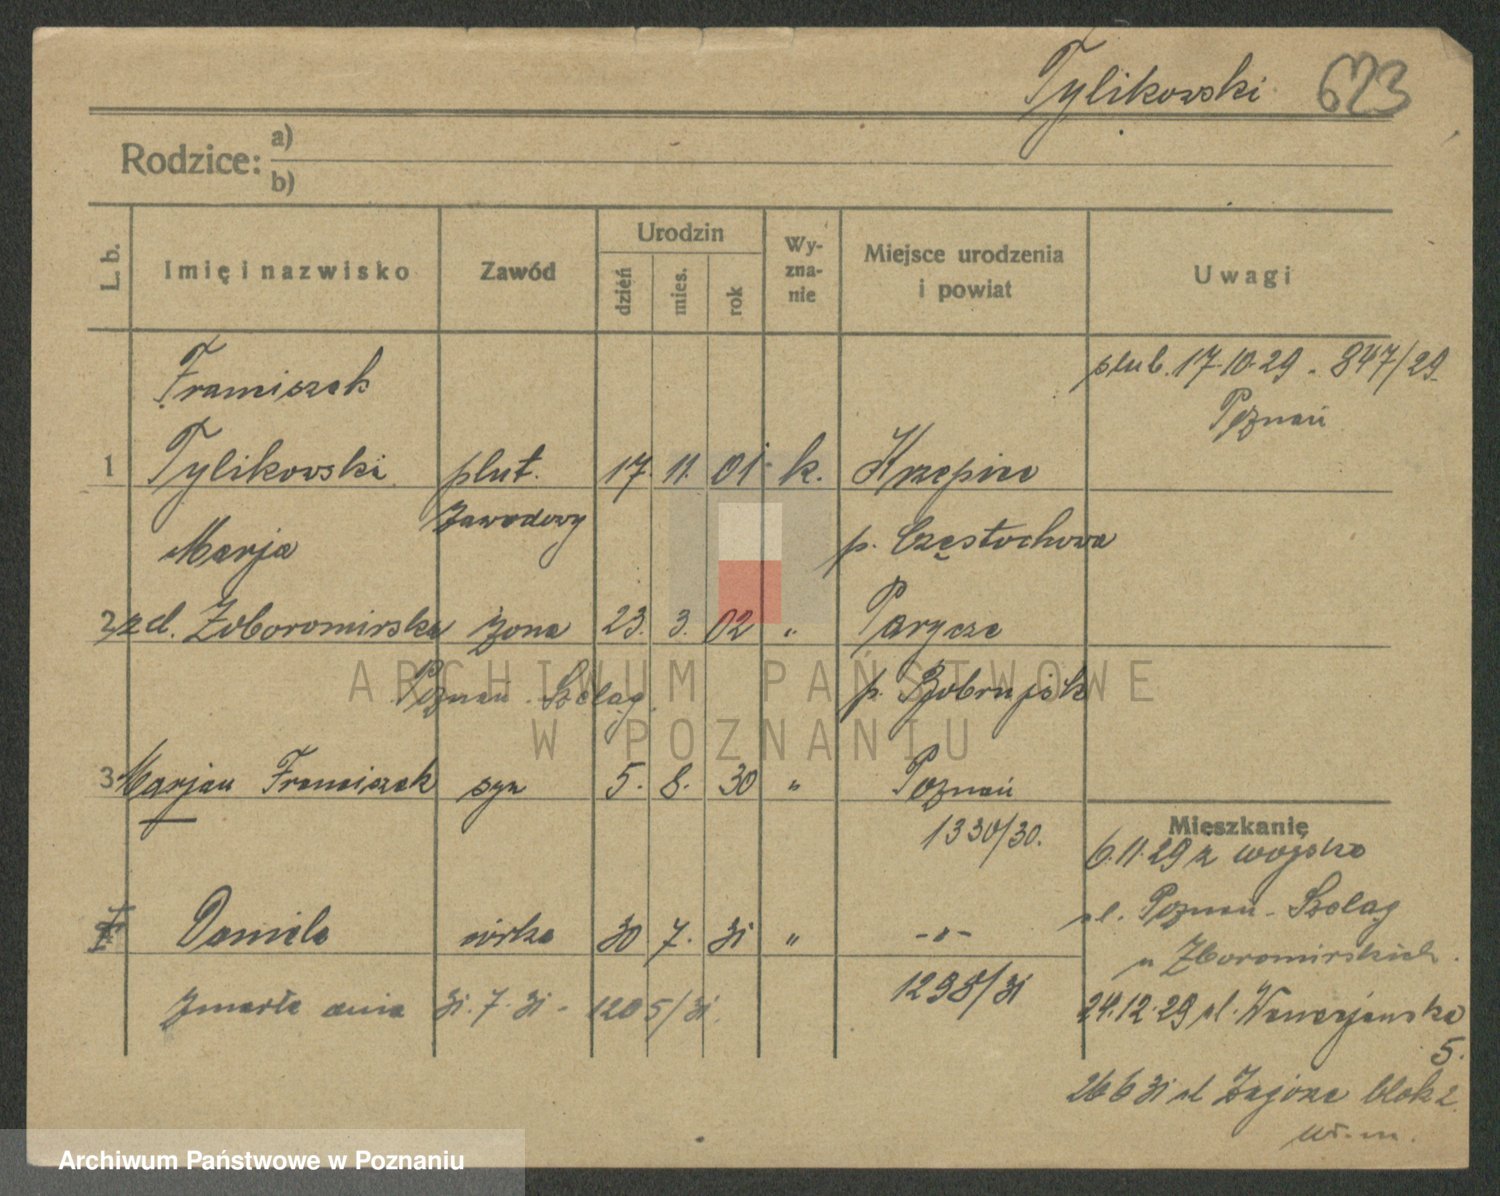 Tylikowski 623
Rodzice: a)
b)
L. b. Imię i nazwisko Zawód Urodzin dzień mies. rok Wy-zna-nie Miejsce urodzenia i powiat Uwagi
Franciszek ślub. 17.10.29 - 847/29
Poznań
1 Tylikowski plut. 17. 11. 01 k. Krzepice
zawodowy
Marja p. Częstochowa
2 zd. Zboromirska żona 23. 3. 02 " Parycze
Poznań Szeląg p. Bobrujsk
3 Marjan Franciszek syn 5. 8. 30 " Poznań
1330/30.
Mieszkanie
6.11.29 z wojska
ul. Poznań - Szeląg
u Zboromirskich.
Daniela córka 30 7. 31 " -"-
1298/31
zmarła dnia 31.7.31 - 1205/31.
24.12.29 ul. Wenecjańska
5.
26 6 31 ul Zagórze blok 2.
ARCHIWUM PAŃSTWOWE
W POZNANIU
Archiwum Państwowe w Poznaniu